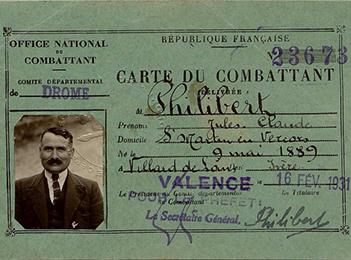 OFFICE NATIONAL
DU
COMBATTANT
COMITÉ DÉPARTEMENTAL
de DROME
RÉPUBLIQUE FRANÇAISE
23673
CARTE DU COMBATTANT
DÉLIVRÉE à
M Philibert
Prénoms Jules Claude
Domicile St Martin en Vercors
Né le 9 mai 1889
à Villard de Lans Isère
VALENCE, le 16 FÉV. 1931
Le Président du Comité départemental
du Combattant
Le Titulaire
POUR LE PRÉFET:
Le Secrétaire Général,
Philibert